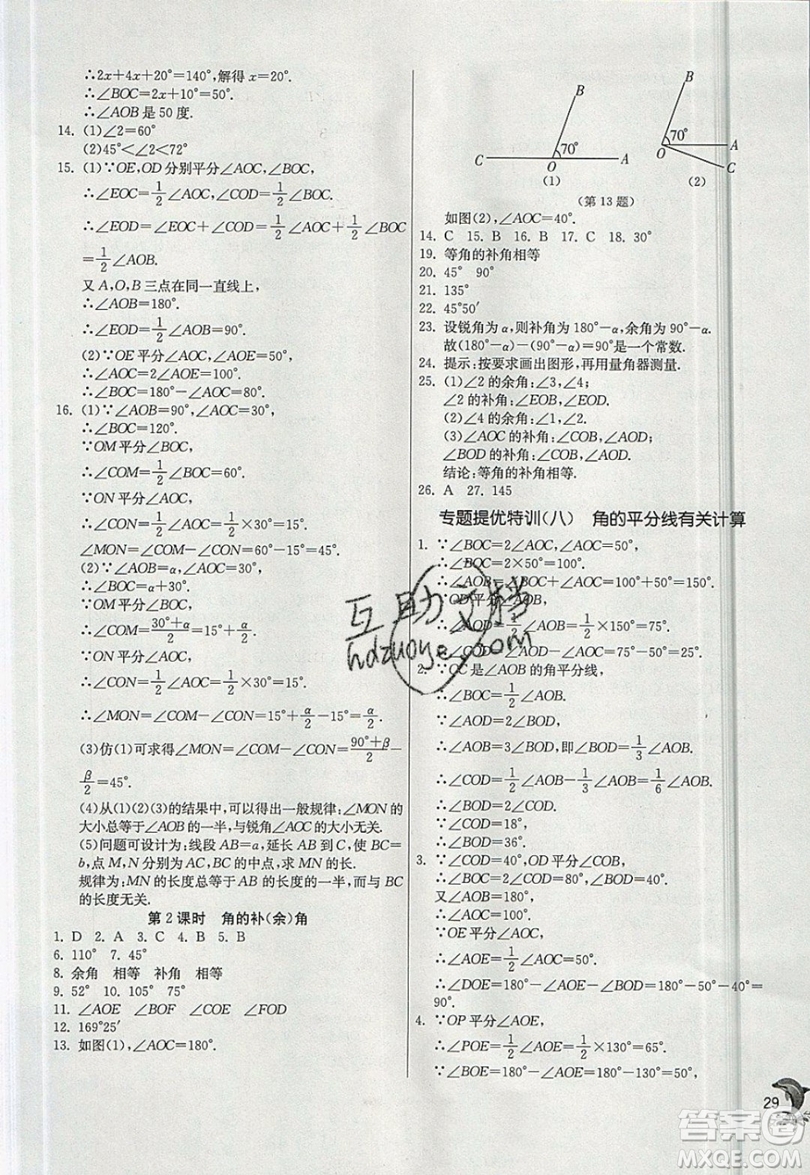 ∴2x+4x+20°=140°,解得 x=20°.
∴∠BOC=2x+10°=50°.
∴∠AOB 是 50 度.
14. (1)∠2=60°
(2)45°<∠2<72°
15. (1)∵OE,OD 分别平分∠AOC,∠BOC,
∴∠EOC=1/2∠AOC,∠COD=1/2∠BOC,
∴∠EOD=∠EOC+∠COD=1/2∠AOC+1/2∠BOC
=1/2∠AOB.
又 A,O,B 三点在同一直线上,
∴∠AOB=180°.
∴∠EOD=1/2∠AOB=90°.
(2)∵OE 平分∠AOC,∠AOE=50°,
∴∠AOC=2∠AOE=100°.
∴∠BOC=180°-∠AOC=80°.
16. (1)∵∠AOB=90°,∠AOC=30°,
∴∠BOC=120°.
∵OM 平分∠BOC,
∴∠COM=1/2∠BOC=60°.
∵ON 平分∠AOC,
∴∠CON=1/2∠AOC=1/2×30°=15°.
∠MON=∠COM-∠CON=60°-15°=45°.
(2)∵∠AOB=90°,∠AOC=30°,
∴∠BOC=α+30°.
∵OM 平分∠BOC,
∴∠COM=(30°+α)/2=15°+α/2.
∵ON 平分∠AOC,
∴∠CON=1/2∠AOC=15°.
∴∠MON=∠COM-∠CON=15°+α/2-15°=α/2.
(3)仿(1)可求得∠MON=∠COM-∠CON=(90°+β)/2-
β/2=45°.
(4)从(1)(2)(3)的结果中,可以得出一般规律:∠MON 的
大小总等于∠AOB 的一半,与锐角∠AOC 的大小无关.
(5)问题可设计为:线段 AB=a,延长 AB 到 C,使 BC=
b,点 M,N 分别为 AC,BC 的中点,求 MN 的长.
规律为:MN 的长度总等于 AB 的长度的一半,而与 BC
的长度无关.
第 2 课时 角的补(余)角
1. D 2. A 3. C 4. B 5. B
6. 110° 7. 45°
8. 余角 相等 补角 相等
9. 52° 10. 105° 75°
11. ∠AOE ∠BOF ∠COE ∠FOD
12. 169°25′
13. 如图(1),∠AOC=180°.
B
70°
C O A
(1)
B
70°
O A
C
(2)
(第 13 题)
如图(2),∠AOC=40°.
14. C 15. B 16. B 17. C 18. 30°
19. 等角的补角相等
20. 45° 90°
21. 135°
22. 45°50′
23. 设锐角为 α,则补角为 180°-α,余角为 90°-α.
故(180°-α)-(90°-α)=90°是一个常数.
24. 提示:按要求画出图形,再用量角器测量.
25. (1)∠2 的余角:∠3,∠4;
∠2 的补角:∠EOB,∠FOD.
(2)∠4 的余角:∠1,∠2.
(3)∠AOC 的补角:∠FOD,∠AOD;
∠BOD 的补角:∠EOB,∠AOD.
结论:等角的补角相等.
26. A 27. 145
专题提优特训(八) 角的平分线有关计算
1. ∵∠BOC=2∠AOC,∠AOC=50°,
∴∠BOC=2×50°=100°.
∴∠AOB=∠BOC+∠AOC=100°+50°=150°.
∵OD平分∠AOB,
∴∠AOD=1/2∠AOB=1/2×150°=75°.
∴∠COD=∠AOD-∠AOC=75°-50°=25°.
2. ∵OC 是∠AOB 的角平分线,
∴∠BOC=1/2∠AOB.
∵∠AOD=2∠BOD,
∴∠AOB=3∠BOD,即∠BOD=1/3∠AOB.
∴∠COD=1/2∠AOB-1/3∠AOB=1/6∠AOB.
∴∠BOD=2∠COD.
∵∠COD=18°,
∴∠BOD=36°.
3. ∵∠COD=40°,OD 平分∠COB,
∴∠BOD=∠COD=40°.
又∠AOB=180°,
∴∠AOC=180°-80°=100°.
∵OE 平分∠AOC,
∴∠AOE=1/2∠AOC=50°.
∴∠DOE=180°-∠AOE-∠BOD=180°-50°-40°=
90°.
4. ∵OP 平分∠AOE,
∴∠POE=1/2∠AOE=1/2×130°=65°.
∵∠BOE=180°-∠AOE=180°-130°=50°,
29
互助文档
hdzuoye.com
答案圈
MXQE.COM